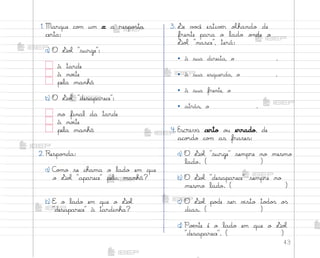 1. Marque com um x a resposta
certa:
a) O Sol "surge":
à tarde
à noite
pela manhã
b) O Sol "desaparece":
no final da tarde
à noite
pela manhã
2. Responda:
a) Como se chama o lado em que
o Sol "aparece" pela manhã?
b) E o lado em que o Sol
"desaparece" à tardinha?
3. Se você estiver olhando de
frente para o lado onde o
Sol "nasce", terá:
• à sua direita, o .
• à sua esquerda, o .
• à sua frente, o .
• atrás, o .
4. Escreva certo ou errado, de
acordo com as frases:
a) O Sol "surge" sempre no mesmo
lado. ( )
b) O Sol "desaparece" sempre no
mesmo lado. ( )
c) O Sol pode ser visto todos os
dias. ( )
d) Poente é o lado em que o Sol
"desaparece". ( )
43